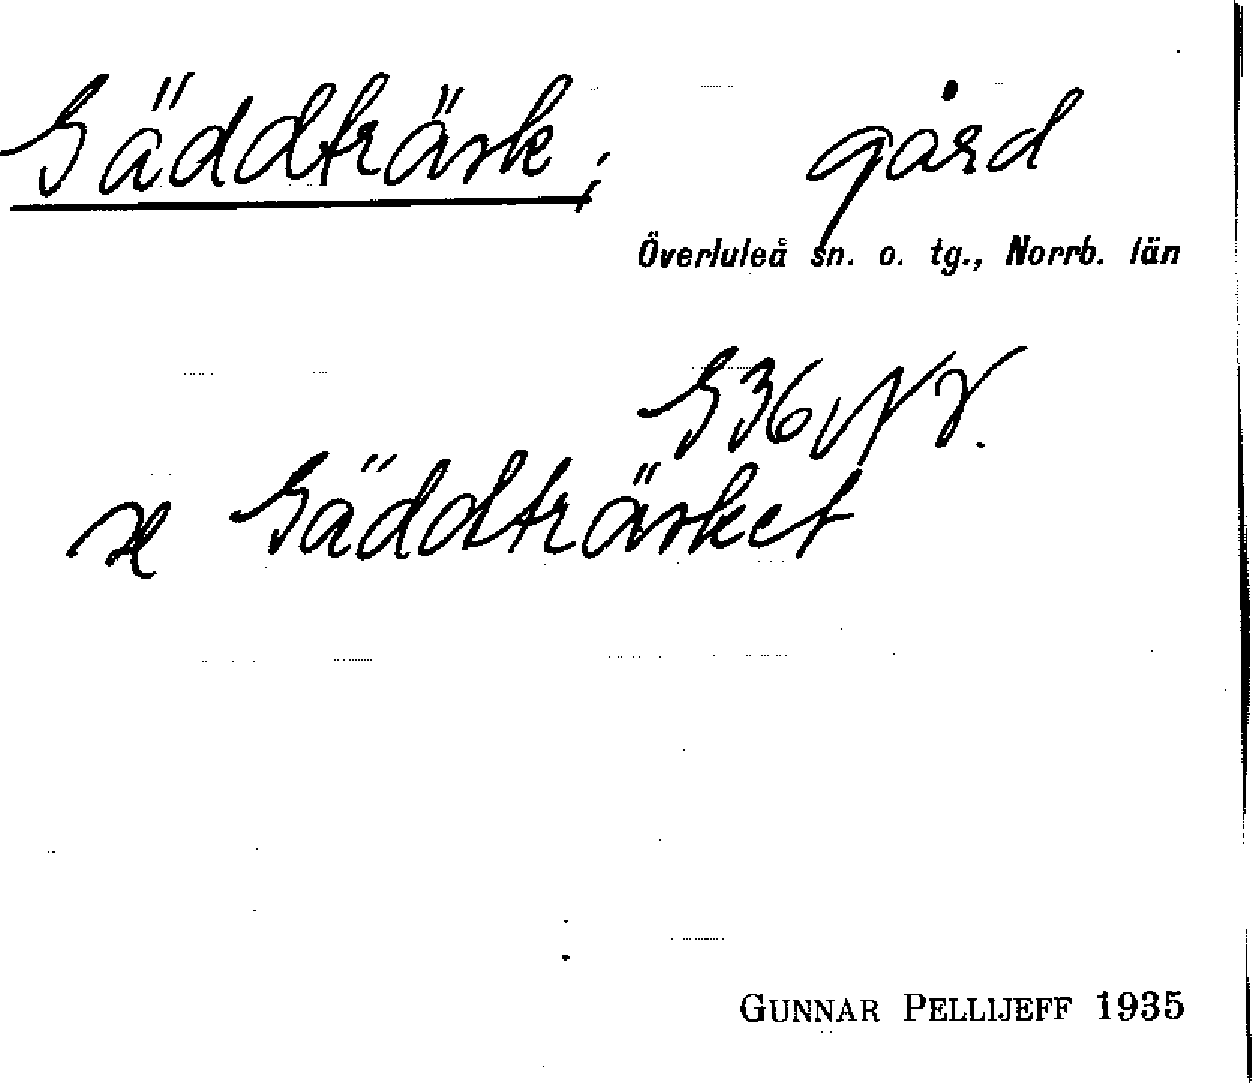 Gäddträsk; gård
Överluleå sn. o. tg., Norrb. län
G36NV.
se Gäddträsket
GUNNAR PELLIJEFF 1935